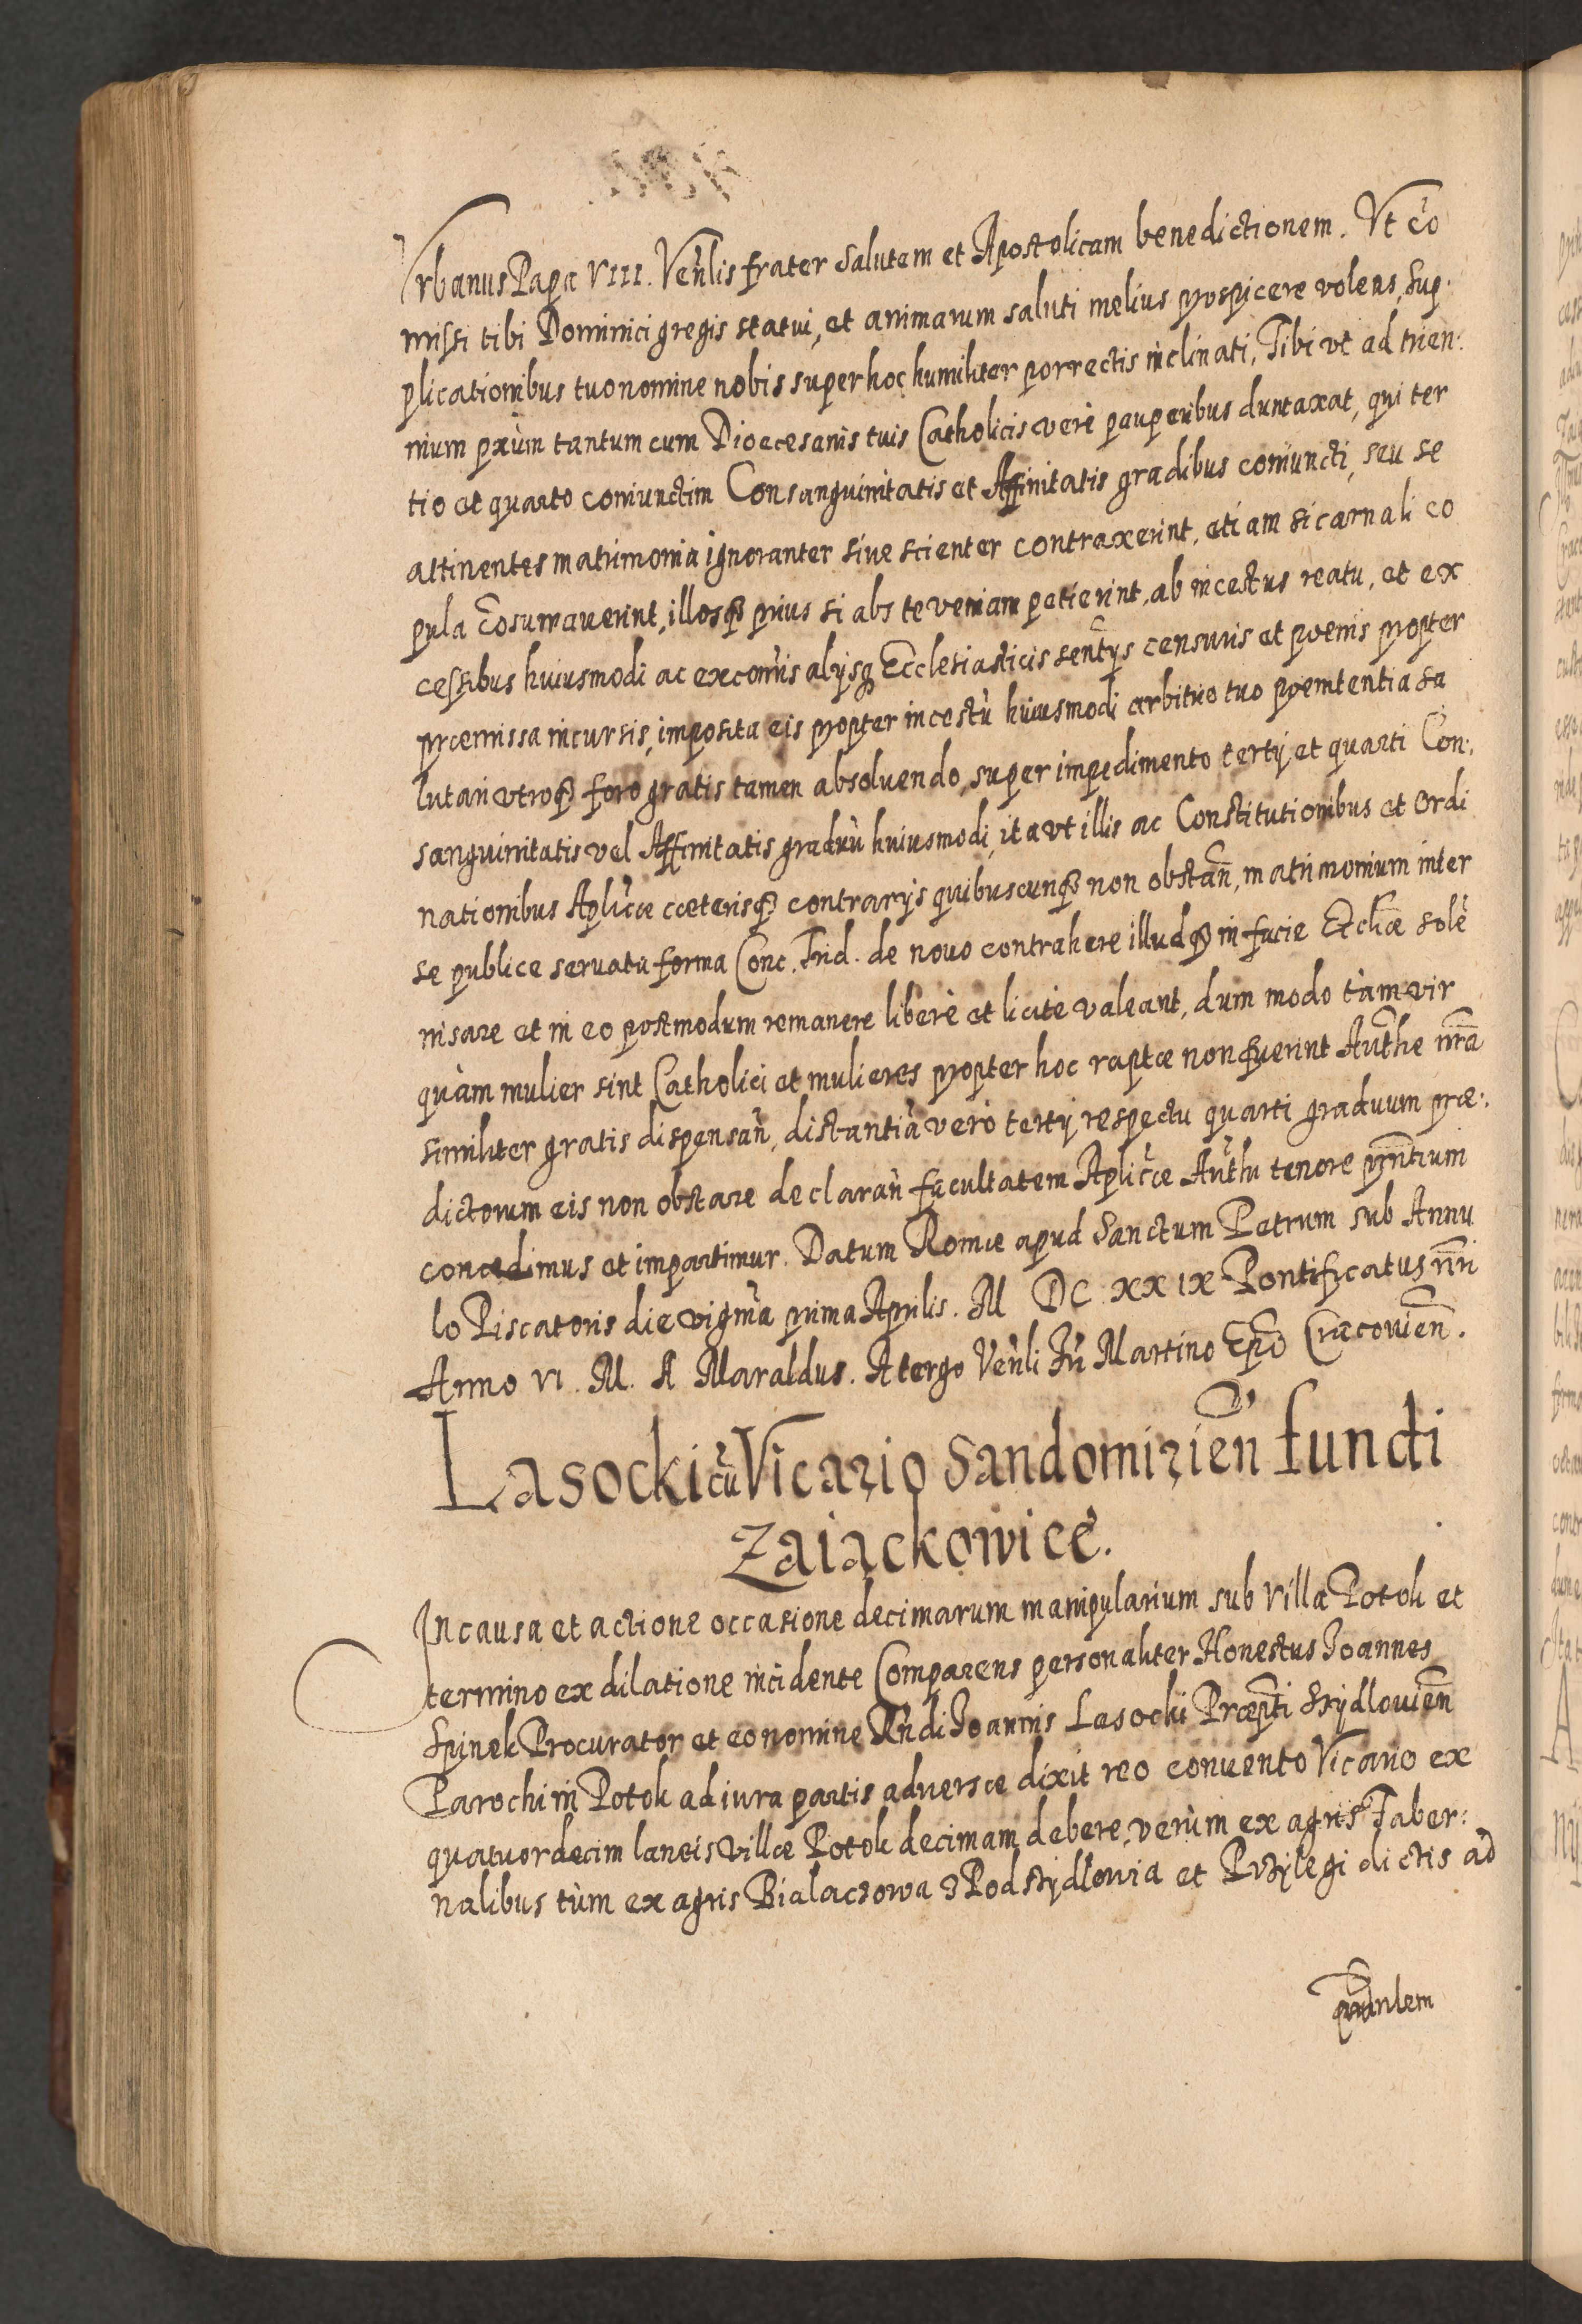 Vrbanus Papa VIII. Veñlis frater salutem et Apostolicam benedictionem. Vt cõ
missi tibi Dominici gregis statui, et animarum saluti melius prospicere volens, sup:
plicationibus tuo nomine nobis super hoc humiliter porrectis inclinati, Tibi vt ad trien:
nium pxùm tantum cum Dioecesanis tuis Catholicis verè pauperibus duntaxat, qui ter
tio et quarto coniunctim Consanguinitatis et Affinitatis gradibus coniuncti, seu se
attinentes matrimonia ignoranter siue scienter contraxerint, etiam si carnali co
pula cõsumauerint, illosq prius si abs te veniam petierint, ab incestus reatu, et ex
cessibus huiusmodi ac excomis alijsq Ecclesiasticis sentijs censuris et poenis propter
præmissa incursis, imposita eis propter incestũ huiusmodi arbitrio tuo poenitentia sa
lutari vtroq foro gratis tamen absoluendo, super impedimento tertij et quarti Con:
sanguinitatis vel Affinitatis graduũ huiusmodi, ita vt illis ac Constitutionibus et Ordi
nationibus Aplicæ cæterisq contrarijs quibuscunq non obstañ, matrimonium inter
se publice seruata forma Conc. Trid. de nouo contrahere illudq in facie Ecclĩæ sole
nisare et in eo postmodum remanere liberè et licitè valeant, dum modo tàm vir
quàm mulier sint Catholici et mulieres propter hoc raptæ non fuerint Authe nr̃a
similiter gratis dispensañ, distantiã verò tertij respectu quarti graduum præ:
dictorum eis non obstare declarañ facultatem Aplicæ Authu tenore pñtium
concedimus et impartimur. Datum Romæ apud Sanctum Petrum sub Annu
lo Piscatoris die vigma prima Aprilis. M DC XXIX Pontificatus nr̃i
Anno VI. M. A Maraldus. A tergo Veñli Fr̃i Martino Ep̃o Cracouieñ.
Lasocki cũ Vicario Sandomirieñ fundi
Zaiackowice.
In causa et actione occasione decimarum manipularium sub Villa Potok et
termino ex dilatione incidente Comparens personaliter Honestus Joannes
Spinek Procurator et eo nomine Rñdi Joannis Lasocki Præpti Szydlouieñ
Parochi in Potok ad iura partis aduersæ dixit reo conuento Vicario ex
quatuordecim laneis villæ Potok decimam debere, verùm ex agris Taber:
nalibus tùm ex agris Bialaczowa Podszydlowia et Przylegi dictis ad